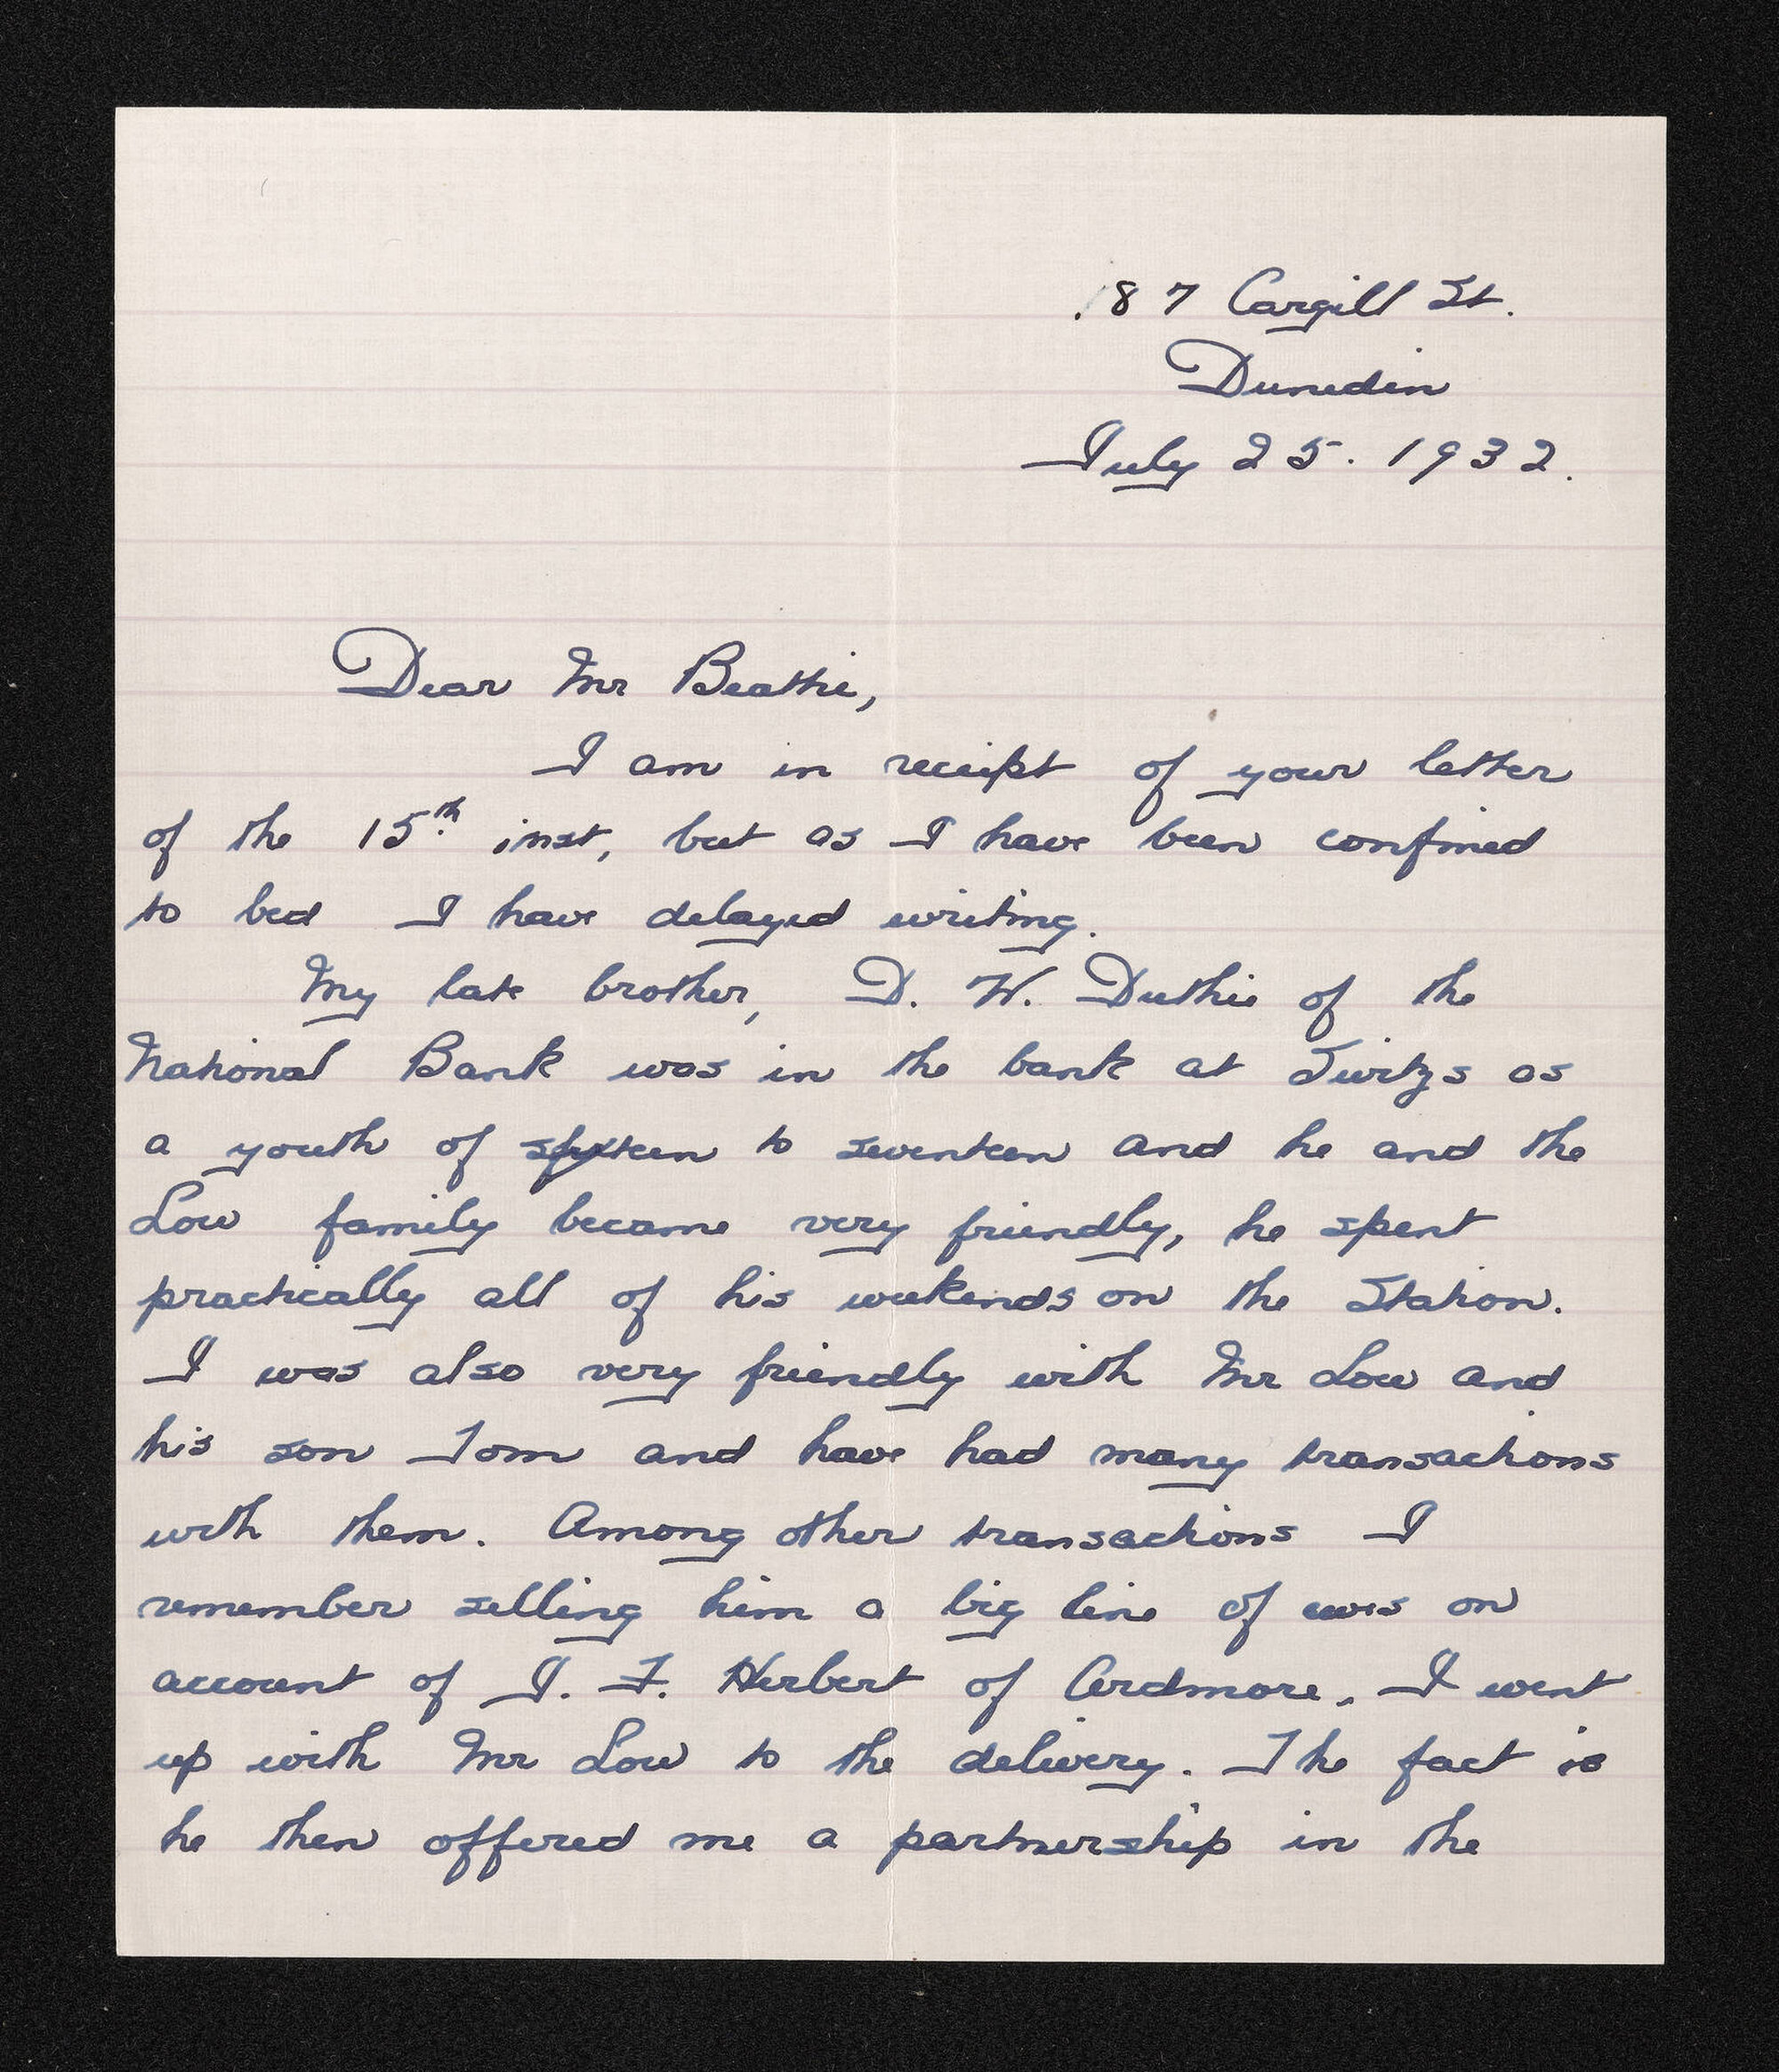 187 Cargill St.
Dunedin
July 25. 1932.
Dear Mr Beattie,
I am in receipt of your letter
of the 15th inst, but as I have been confined
to bed I have delayed writing.
My late brother, D. W. Duthie of the
National Bank was in the bank at Switzs as
a youth of sixteen to seventeen and he and the
Low family became very friendly, he spent
practically all of his weekends on the Station.
I was also very friendly with Mr Low and
his son Tom and have had many transactions
with them. Among other transactions I
remember selling him a big line of ewes on
account of J. F. Herbert of Ardmore. I went
up with Mr Low to the delivery. The fact is
he then offered me a partnership in the